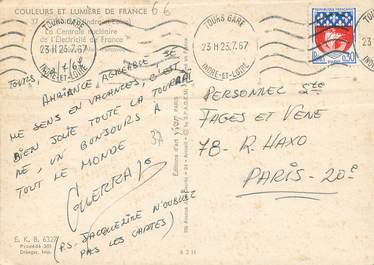 COULEURS ET LUMIÈRE DE FRANCE
66
37 (Indre-et-Loire)
La Centrale nucléaire
de l'Electricité de France
TOURS GARE
23H 25.7.67
INDRE-ET-LOIRE
TOURS GARE
23H 25.7.67
INDRE-ET-LOIRE
REPUBLIQUE FRANÇAISE
0,30
TOUTES, AMBIANCE AGRÉABLE, JE
ME SENS EN VACANCES, C'EST
BIEN JOLIE TOUTE LA TOURAI
NE, UN BONJOURS À
TOUT LE MONDE
37
GUERRA
(P.S. JACQUELINE N'OUBLIE
PAS LES CARTES)
Editions d'art YVON
PERSONNEL Sté
FAGES ET VENE
78 - R. HAXO
PARIS - 20e
E. K. B. 6327
Draeger, Imp.
62H